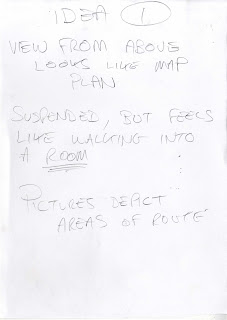 IDEA 1
VIEW FROM ABOVE
LOOKS LIKE MAP
PLAN
SUSPENDED, BUT FEELS
LIKE WALKING INTO
A ROOM
PICTURES DEPICT
AREAS OF ROUTE